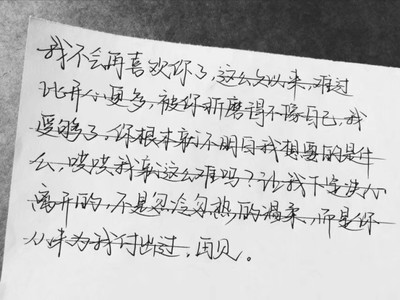 我不会再喜欢你了,这么久以来,难过
比开心更多,被你折磨得不像自己,我
受够了。你根本就不明白我想要的是什
么,哄哄我就这么难吗?让我下定决心
离开的,不是忽冷忽热的温柔,而是你
从未为我付出过,再见。